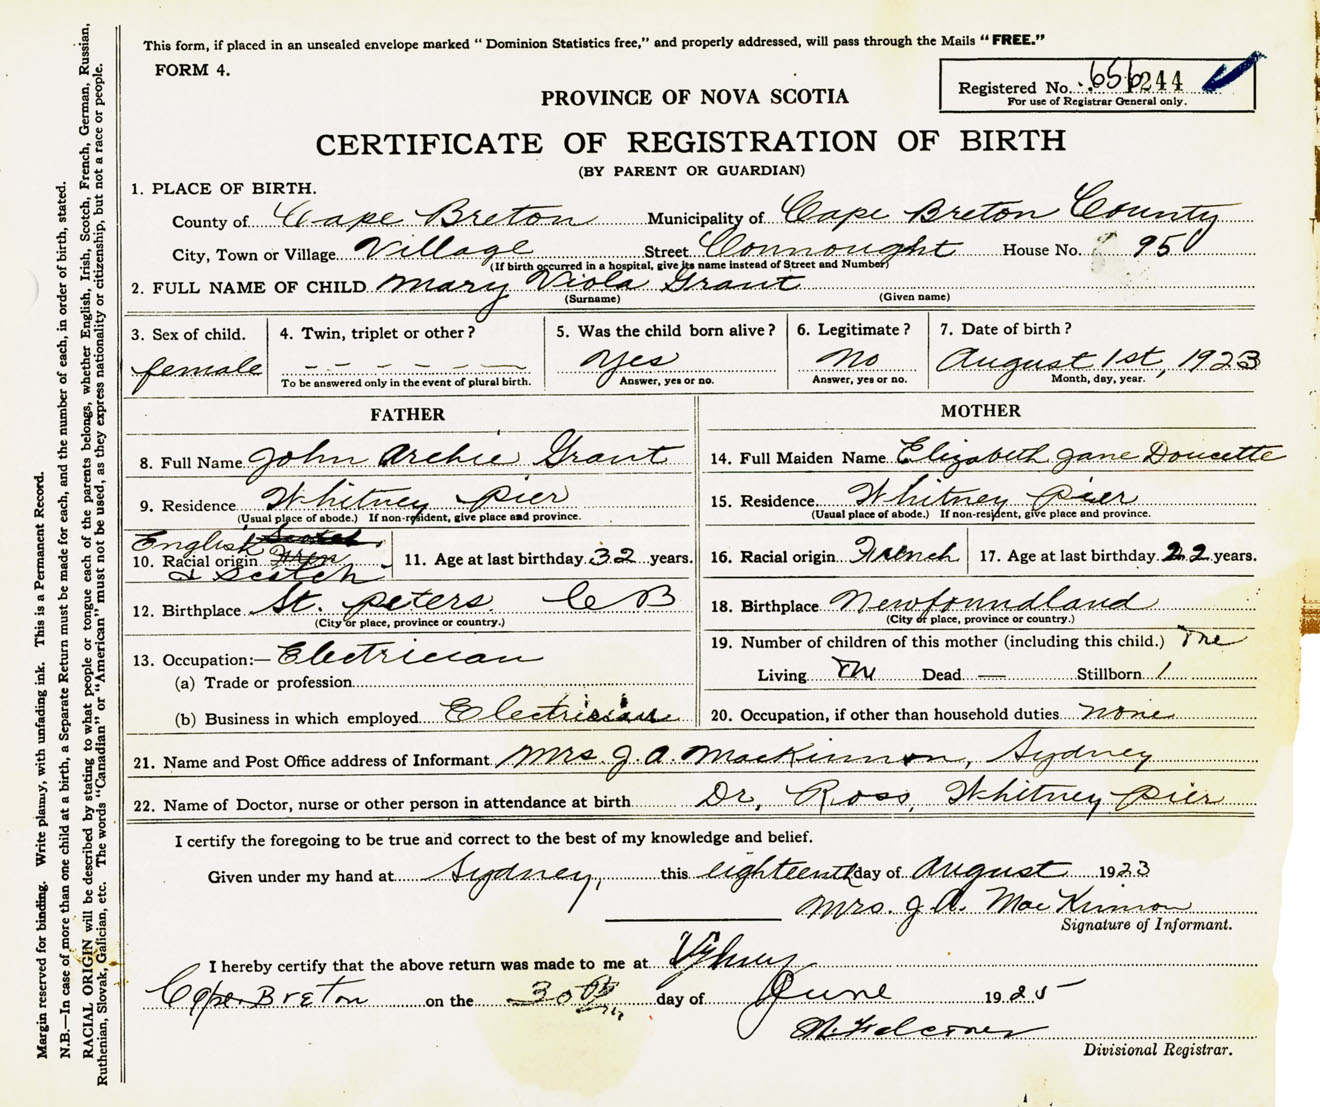 This form, if placed in an unsealed envelope marked “ Dominion Statistics free,” and properly addressed, will pass through the Mails “FREE.”
FORM 4.
Registered No. 656244
For use of Registrar General only.
PROVINCE OF NOVA SCOTIA
CERTIFICATE OF REGISTRATION OF BIRTH
(BY PARENT OR GUARDIAN)
1. PLACE OF BIRTH.
County of Cape Breton Municipality of Cape Breton County
City, Town or Village Village Street Connought House No. 95
(If birth occurred in a hospital, give its name instead of Street and Number)
2. FULL NAME OF CHILD Mary Viola Grant
(Surname) (Given name)
3. Sex of child. 4. Twin, triplet or other? 5. Was the child born alive? 6. Legitimate? 7. Date of birth?
female – – – – – Yes No August 1st, 1923
To be answered only in the event of plural birth. Answer, yes or no. Answer, yes or no. Month, day, year.
FATHER MOTHER
8. Full Name John Archie Grant 14. Full Maiden Name Elizabeth Jane Doucette
9. Residence Whitney Pier 15. Residence Whitney Pier
(Usual place of abode.) If non-resident, give place and province. (Usual place of abode.) If non-resident, give place and province.
English Scotch
10. Racial origin Fren 11. Age at last birthday 32 years. 16. Racial origin French 17. Age at last birthday 22 years.
& Scotch
12. Birthplace St. Peters C B 18. Birthplace Newfoundland
(City or place, province or country.) (City or place, province or country.)
13. Occupation:— Electrician 19. Number of children of this mother (including this child.)
(a) Trade or profession Living Dead — Stillborn 1
(b) Business in which employed Electrician 20. Occupation, if other than household duties none
21. Name and Post Office address of Informant Mrs. J. A. MacKinnon, Sydney
22. Name of Doctor, nurse or other person in attendance at birth Dr. Ross, Whitney Pier
I certify the foregoing to be true and correct to the best of my knowledge and belief.
Given under my hand at Sydney, this eighteenth day of August 1923
Mrs. J. A. MacKinnon
Signature of Informant.
I hereby certify that the above return was made to me at Sydney
Cape Breton on the 30th day of June 1925
Divisional Registrar.
Margin reserved for binding. Write plainly, with unfading ink. This is a Permanent Record.
N.B.—In case of more than one child at a birth, a Separate Return must be made for each, and the number of each, in order of birth, stated.
RACIAL ORIGIN will be described by stating to what people or tongue each of the parents belongs, whether English, Irish, Scotch, French, German, Russian,
Ruthenian, Slovak, Galician, etc. The words “Canadian” or “American” must not be used, as they express nationality or citizenship, but not a race or people.